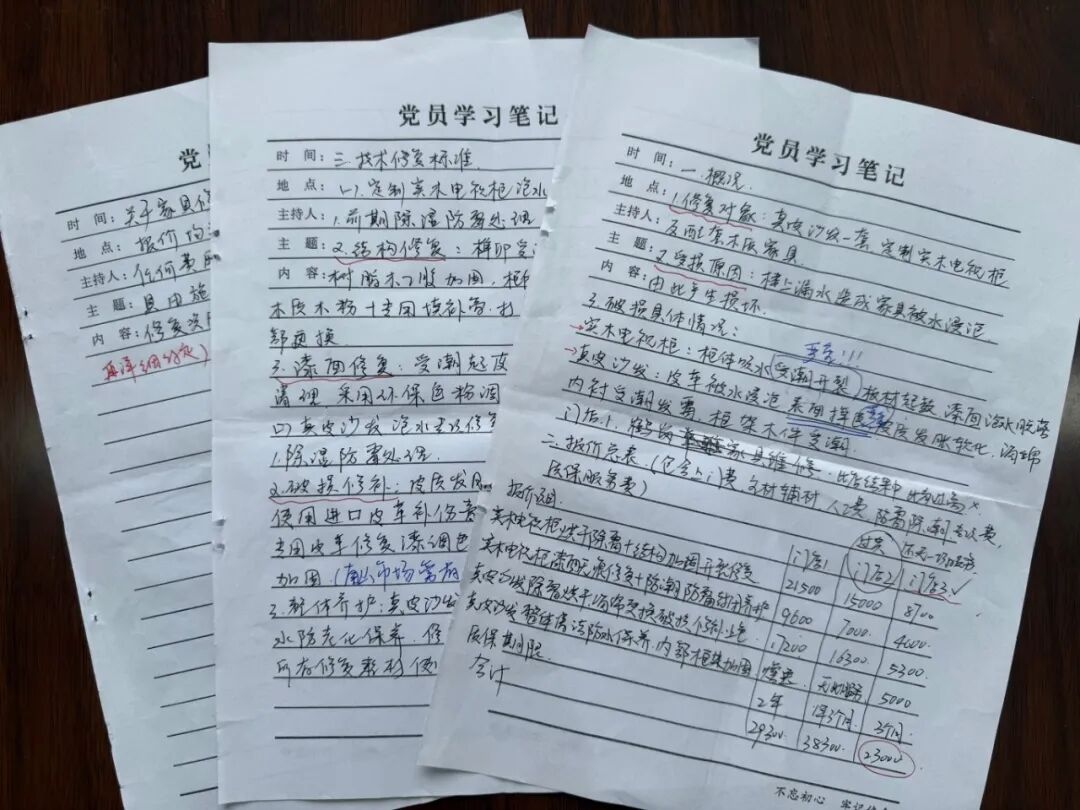 党
时 间：关于家具修
地 点：报价均
主持人：任何费用
主 题：具由施
内 容：修复
再详细约定）
党员学习笔记
时 间：三.技术修复标准.
地 点：(一).定制实木电视柜泡水
主持人：1.前期除湿防霉处理
主 题：2.结构修复：榫卯受
内 容：树脂木工胶加固，柜
木质木粉+专用填补膏,打
部更换
3.漆面修复：受潮起皮
清理 采用环保色粉调
(二)真皮沙发泡水专项修复
1.除湿防霉处理.
2.破损修补：皮质发
使用进口皮革补伤膏
专用皮革修复漆调色
加固（南山市场常有
3.整体养护：真皮沙发
水防老化保养，
所有修复素材使
党员学习笔记
时 间：一.概况.
地 点：1.修复对象：真皮沙发一套、定制实木电视柜
主持人：及配套木质家具.
主 题：2.受损原因：楼上漏水造成家具被水浸泡
内 容：由此产生损坏.
3.破损具体情况：
→实木电视柜：柜体吸水受潮开裂 板材起鼓 漆面泡水脱落
→真皮沙发：皮革被水浸泡 表面掉色 皮质发胀软化、海绵
内衬受潮发霉、框架木件受潮.
门店1. 家具维修.
二.报价总表（包含上门费、主材辅材、人工费、防霉除潮专项费,
质保服务费）
报价项目. 门店1 门店2 门店3.✓
实木电视柜烘干除霉+结构加固开裂修复 21500 15000 8700
实木电视柜漆面修复+防潮防霉封闭养护 9600 7000 4000
真皮沙发除霉烘干海绵更换破损修补上色. 17200 16300 5300
真皮沙发整体清洁防水保养、内部框架加固 5000
质保期限. 2年 3个月
合计 29300. 38300. 23000
不忘初心